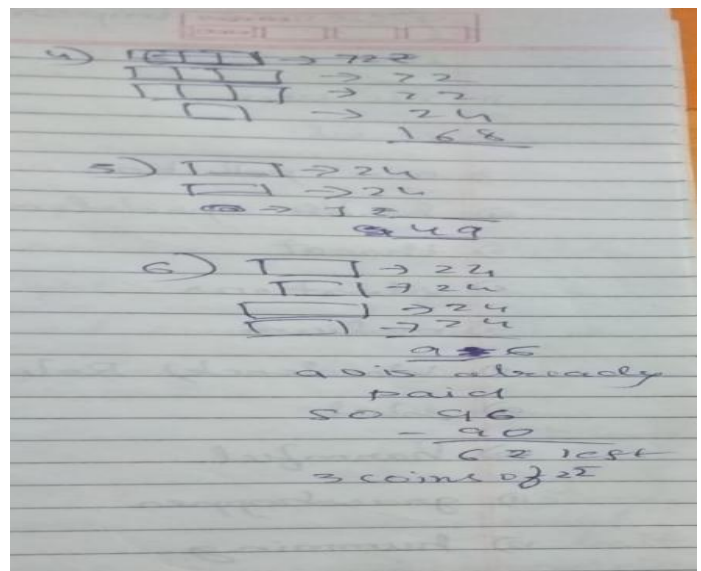 4) → 72
→ 72
→ 72
→ 24
168
5) → 24
→ 24
→ 1
49
6) → 24
→ 24
→ 24
→ 24
96
90 is already
paid
so 96
- 90
6 ₹ left
3 coins of ₹2